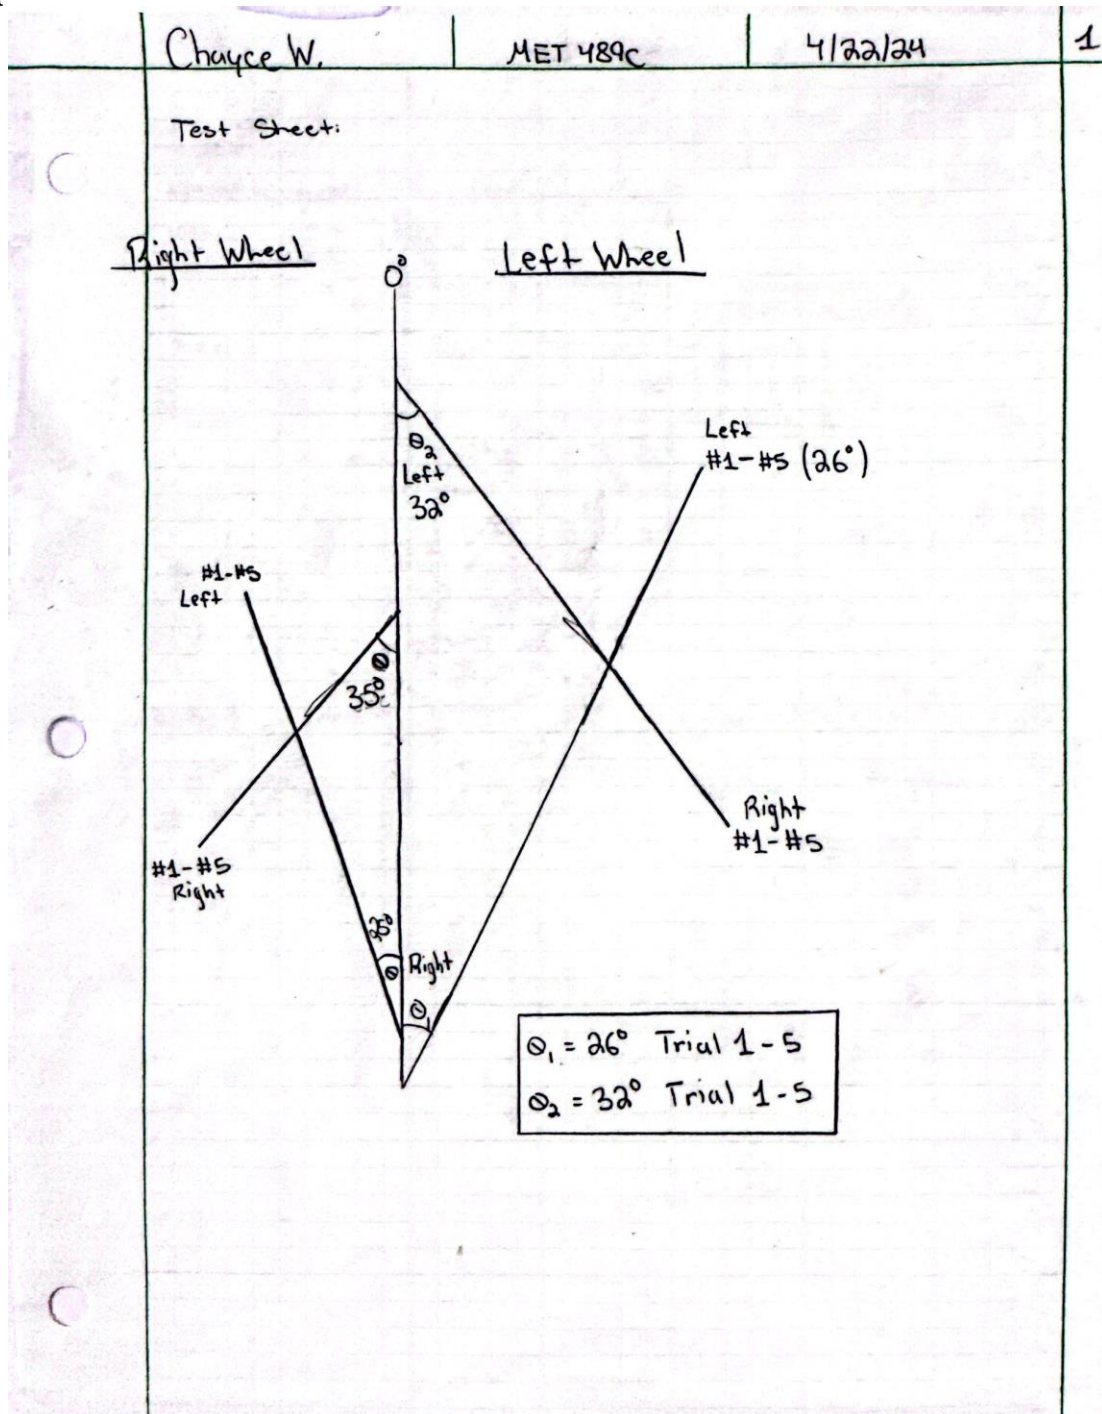 Chayce W.
MET 489C
4/22/24
1
Test Sheet:
Right Wheel
0°
Left Wheel
θ2
Left
32°
Left
#1-#5 (26°)
#1-#5
Left
θ
35°
Right
#1-#5
#1-#5
Right
25°
θ
Right
θ1
θ1 = 26° Trial 1-5
θ2 = 32° Trial 1-5